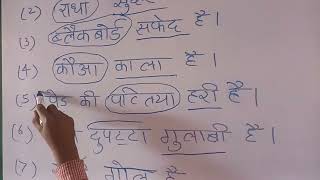 (2) राधा
(3) ब्लैकबोर्ड सफेद है।
(4) कौआ काला है।
(5) पेड़ की पत्तियां हरी है।
(6) दुपट्टा गुलाबी है।
(7) गोल है